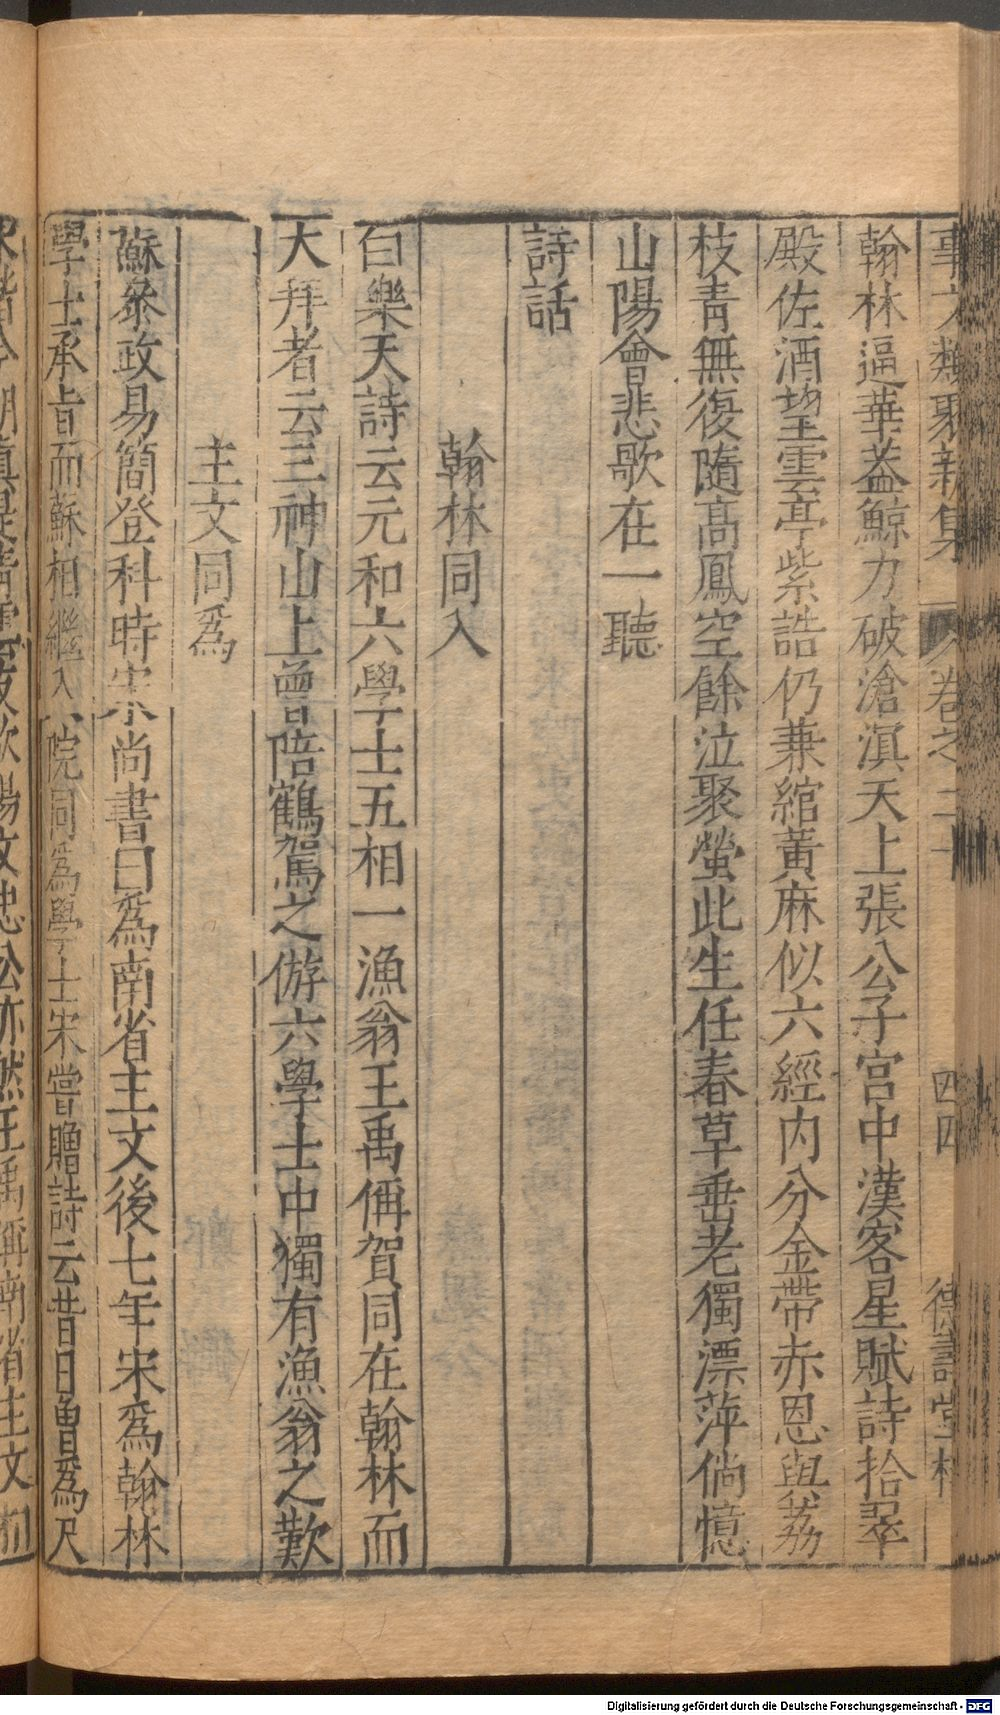 事文類聚新集 卷之二十 四四 德壽堂梓
翰林逼華葢鯨力破滄溟天上張公子宮中漢客星賦詩拾翠
殿佐酒望雲亭紫誥仍兼綰黃麻似六經內分金帶赤恩與荔
枝青無復隨高鳳空餘泣聚螢此生任春草垂老獨漂萍倘憶
山陽會悲歌在一聽
詩話
翰林同入
白樂天詩云元和六學士五相一漁翁王禹偁賀同在翰林而
大拜者云三神山上曾陪鶴駕之遊六學士中獨有漁翁之歎
主文同爲
蘇叅政易簡登科時宋尚書曰爲南省主文後七年宋爲翰林
學士承旨而蘇相繼入院同爲學士宋嘗贈詩云昔日曾爲尺
歐陽文忠公亦然王禹偁南省主文
Digitalisierung gefördert durch die Deutsche Forschungsgemeinschaft - DFG